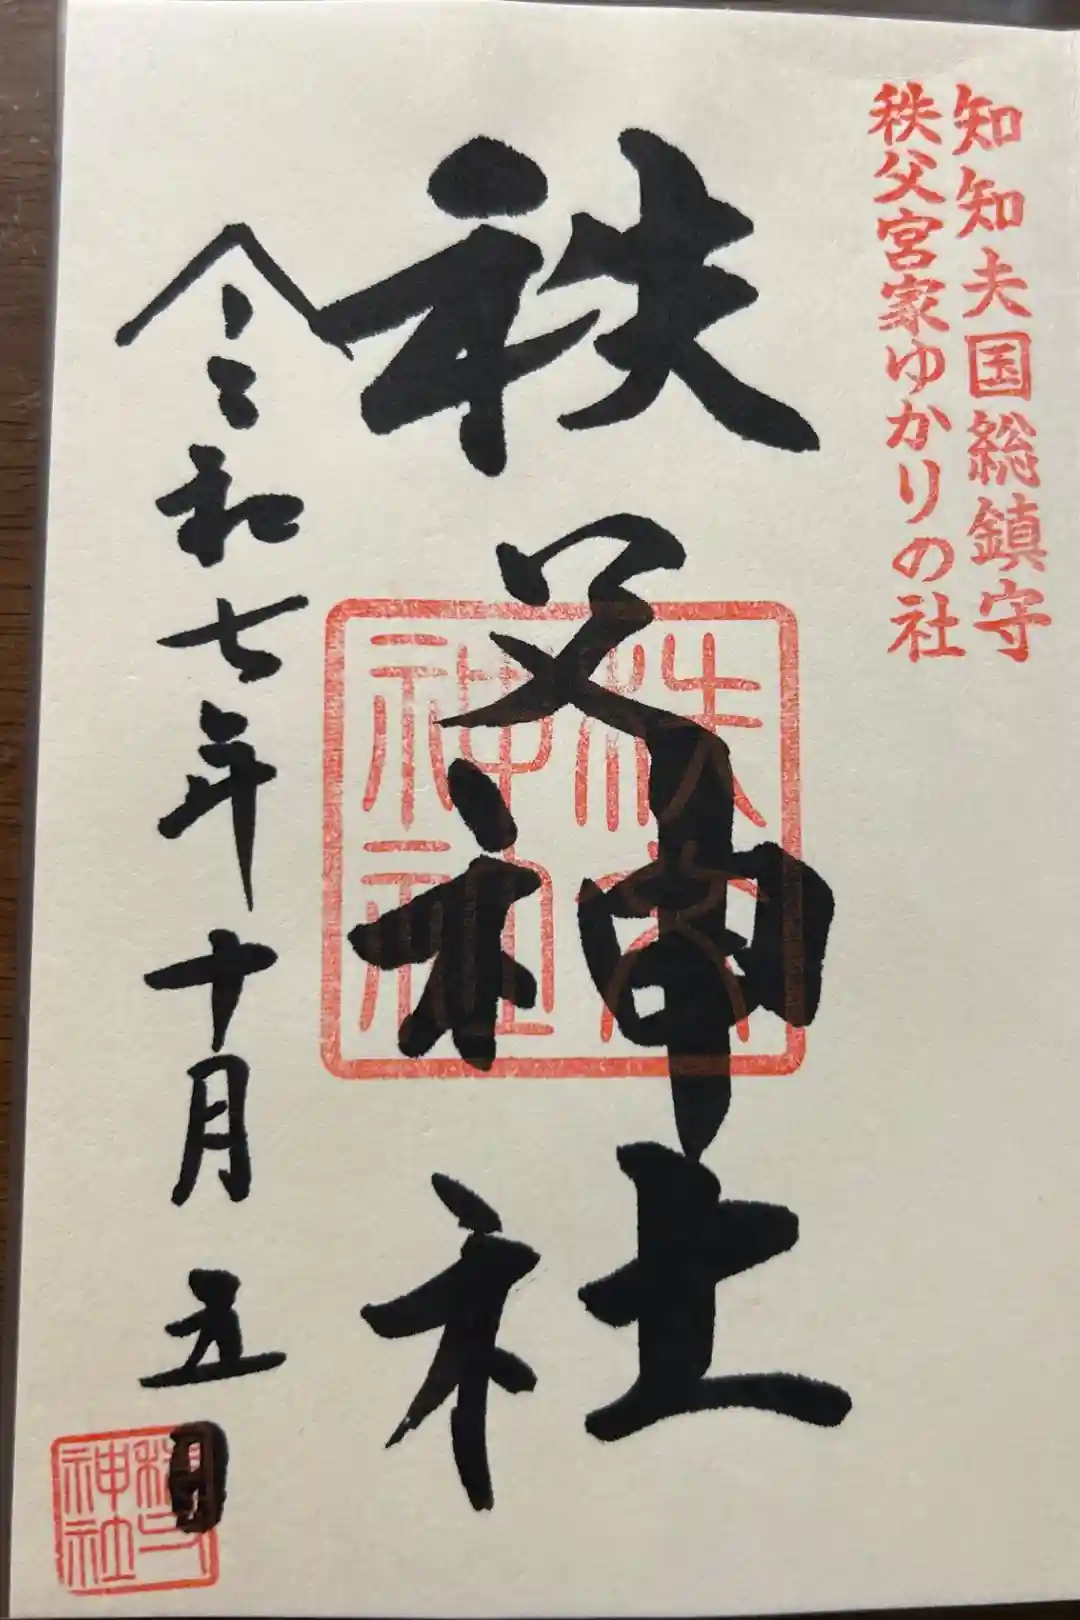 知知夫国総鎮守
秩父宮家ゆかりの社
秩父神社
秩父
神社
令和七年十月五日
神社